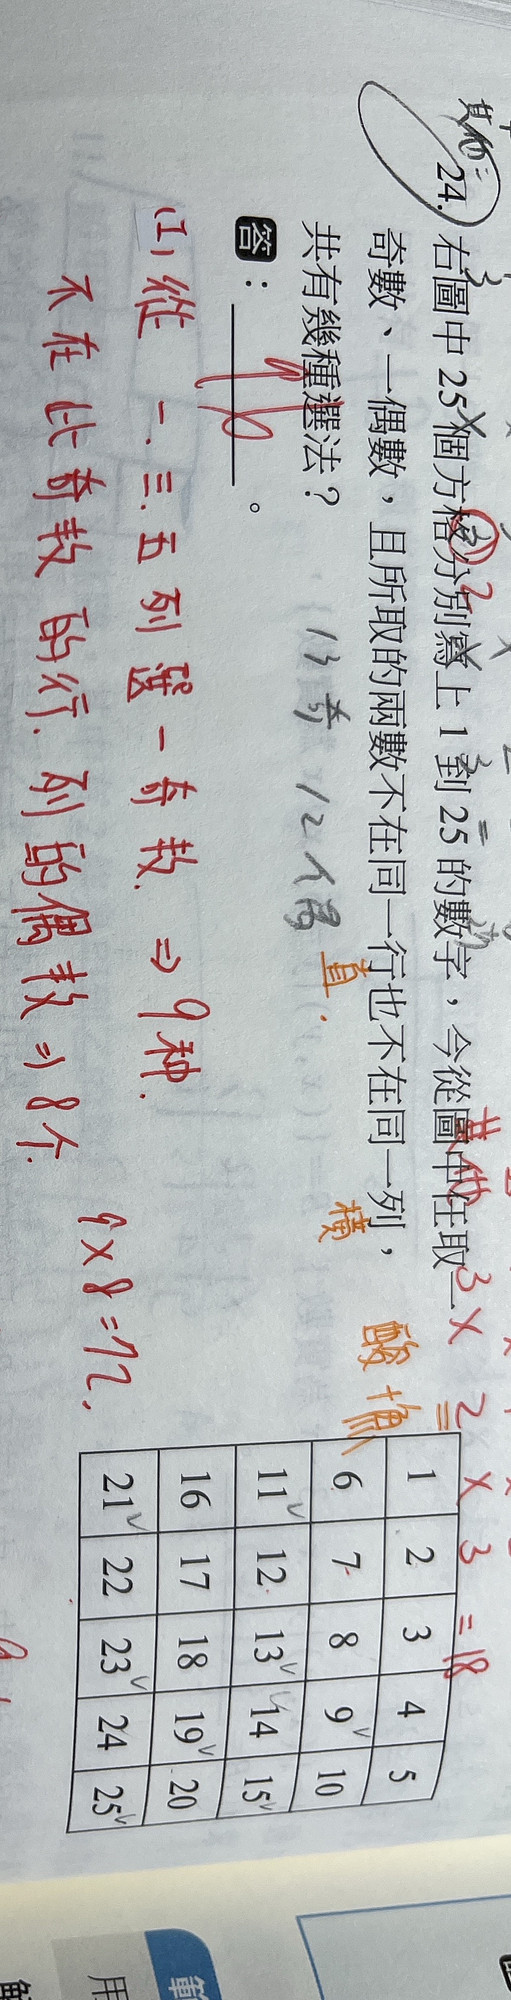 其他：
24. 右圖中 25 個方格分別寫上 1 到 25 的數字，今從圖中任取一
奇數、一偶數，且所取的兩數不在同一行也不在同一列，
直 橫
共有幾種選法？
13奇 12個偶
答：96。
(1) 從 一.三.五 列選一奇數. ⇒ 9种.
不在此奇數的行.列的偶數 ⇒ 8个.
9×8=72.
其他 3×2×3=18
1 2 3 4 5
6 7 8 9 10
11 12 13 14 15
16 17 18 19 20
21 22 23 24 25
用